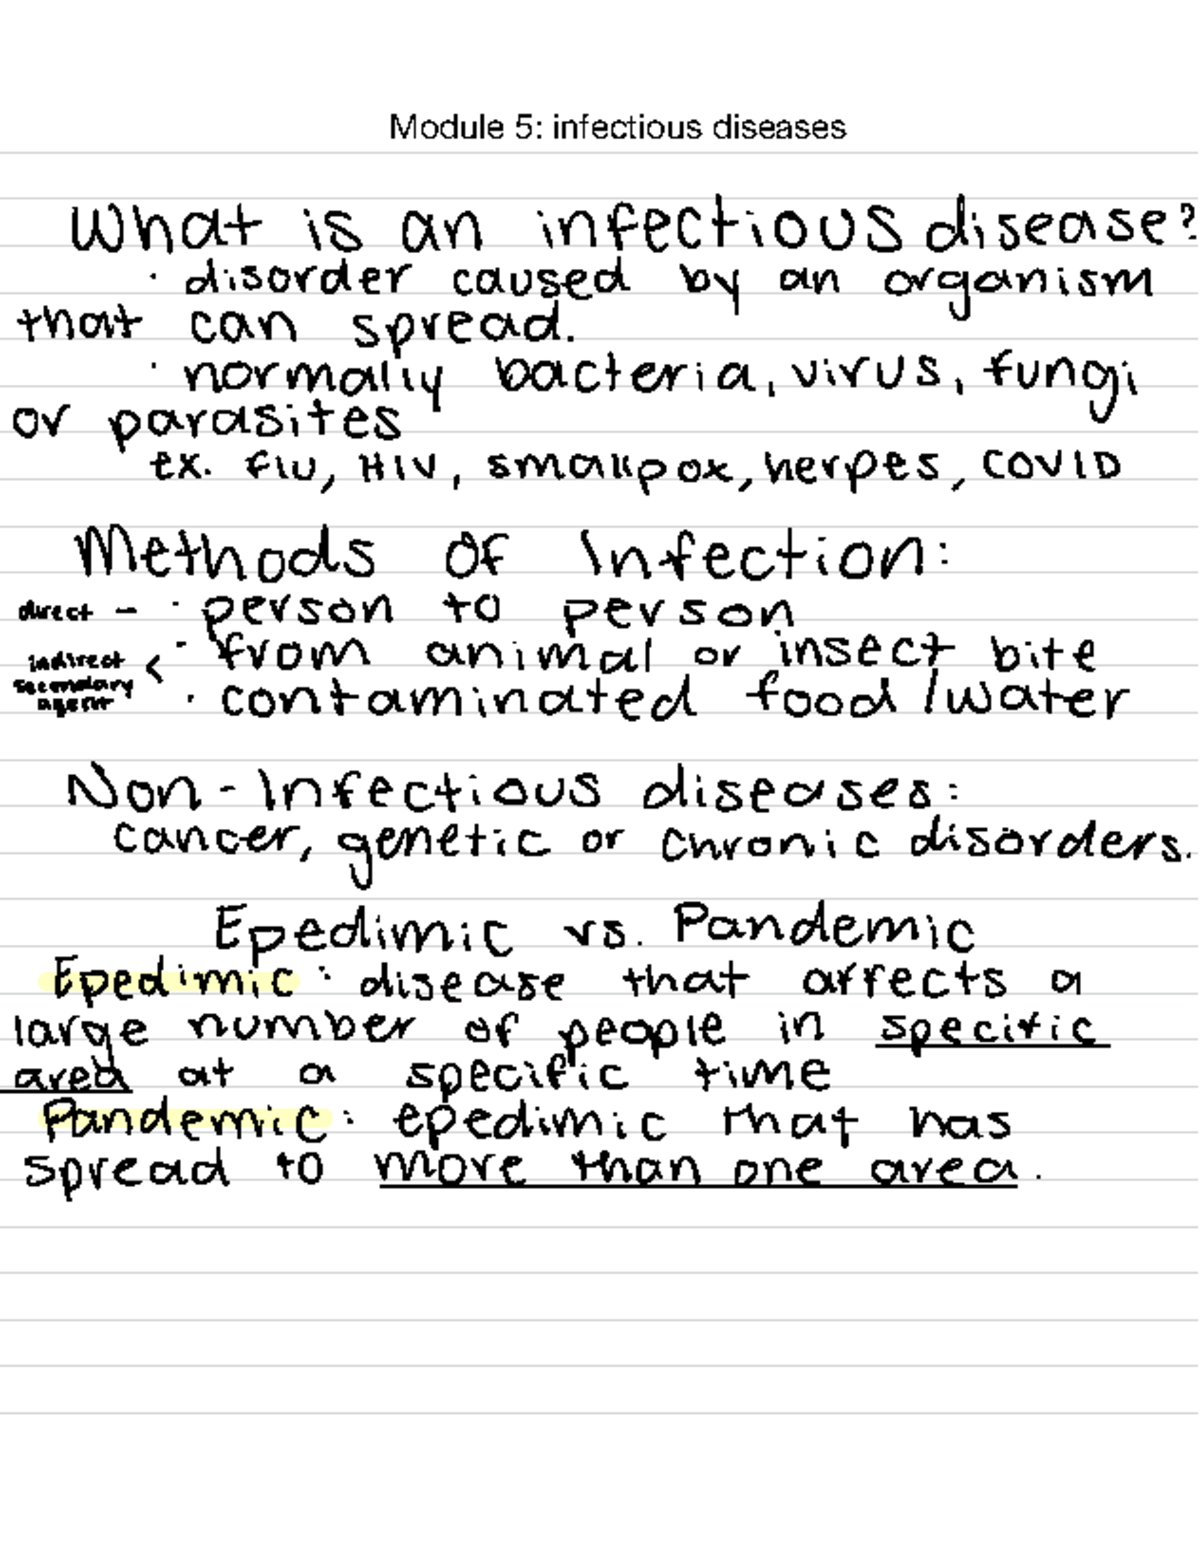 Module 5: infectious diseases
What is an infectious disease?
· disorder caused by an organism
that can spread.
· normally bacteria, virus, fungi
or parasites
ex. flu, HIV, smallpox, herpes, COVID
Methods of Infection:
direct - · person to person
indirect < · from animal or insect bite
secondary
agent · contaminated food /water
Non-Infectious diseases:
cancer, genetic or chronic disorders.
Epedimic vs. Pandemic
Epedimic: disease that affects a
large number of people in specific
area at a specific time
Pandemic: epedimic that has
spread to more than one area.